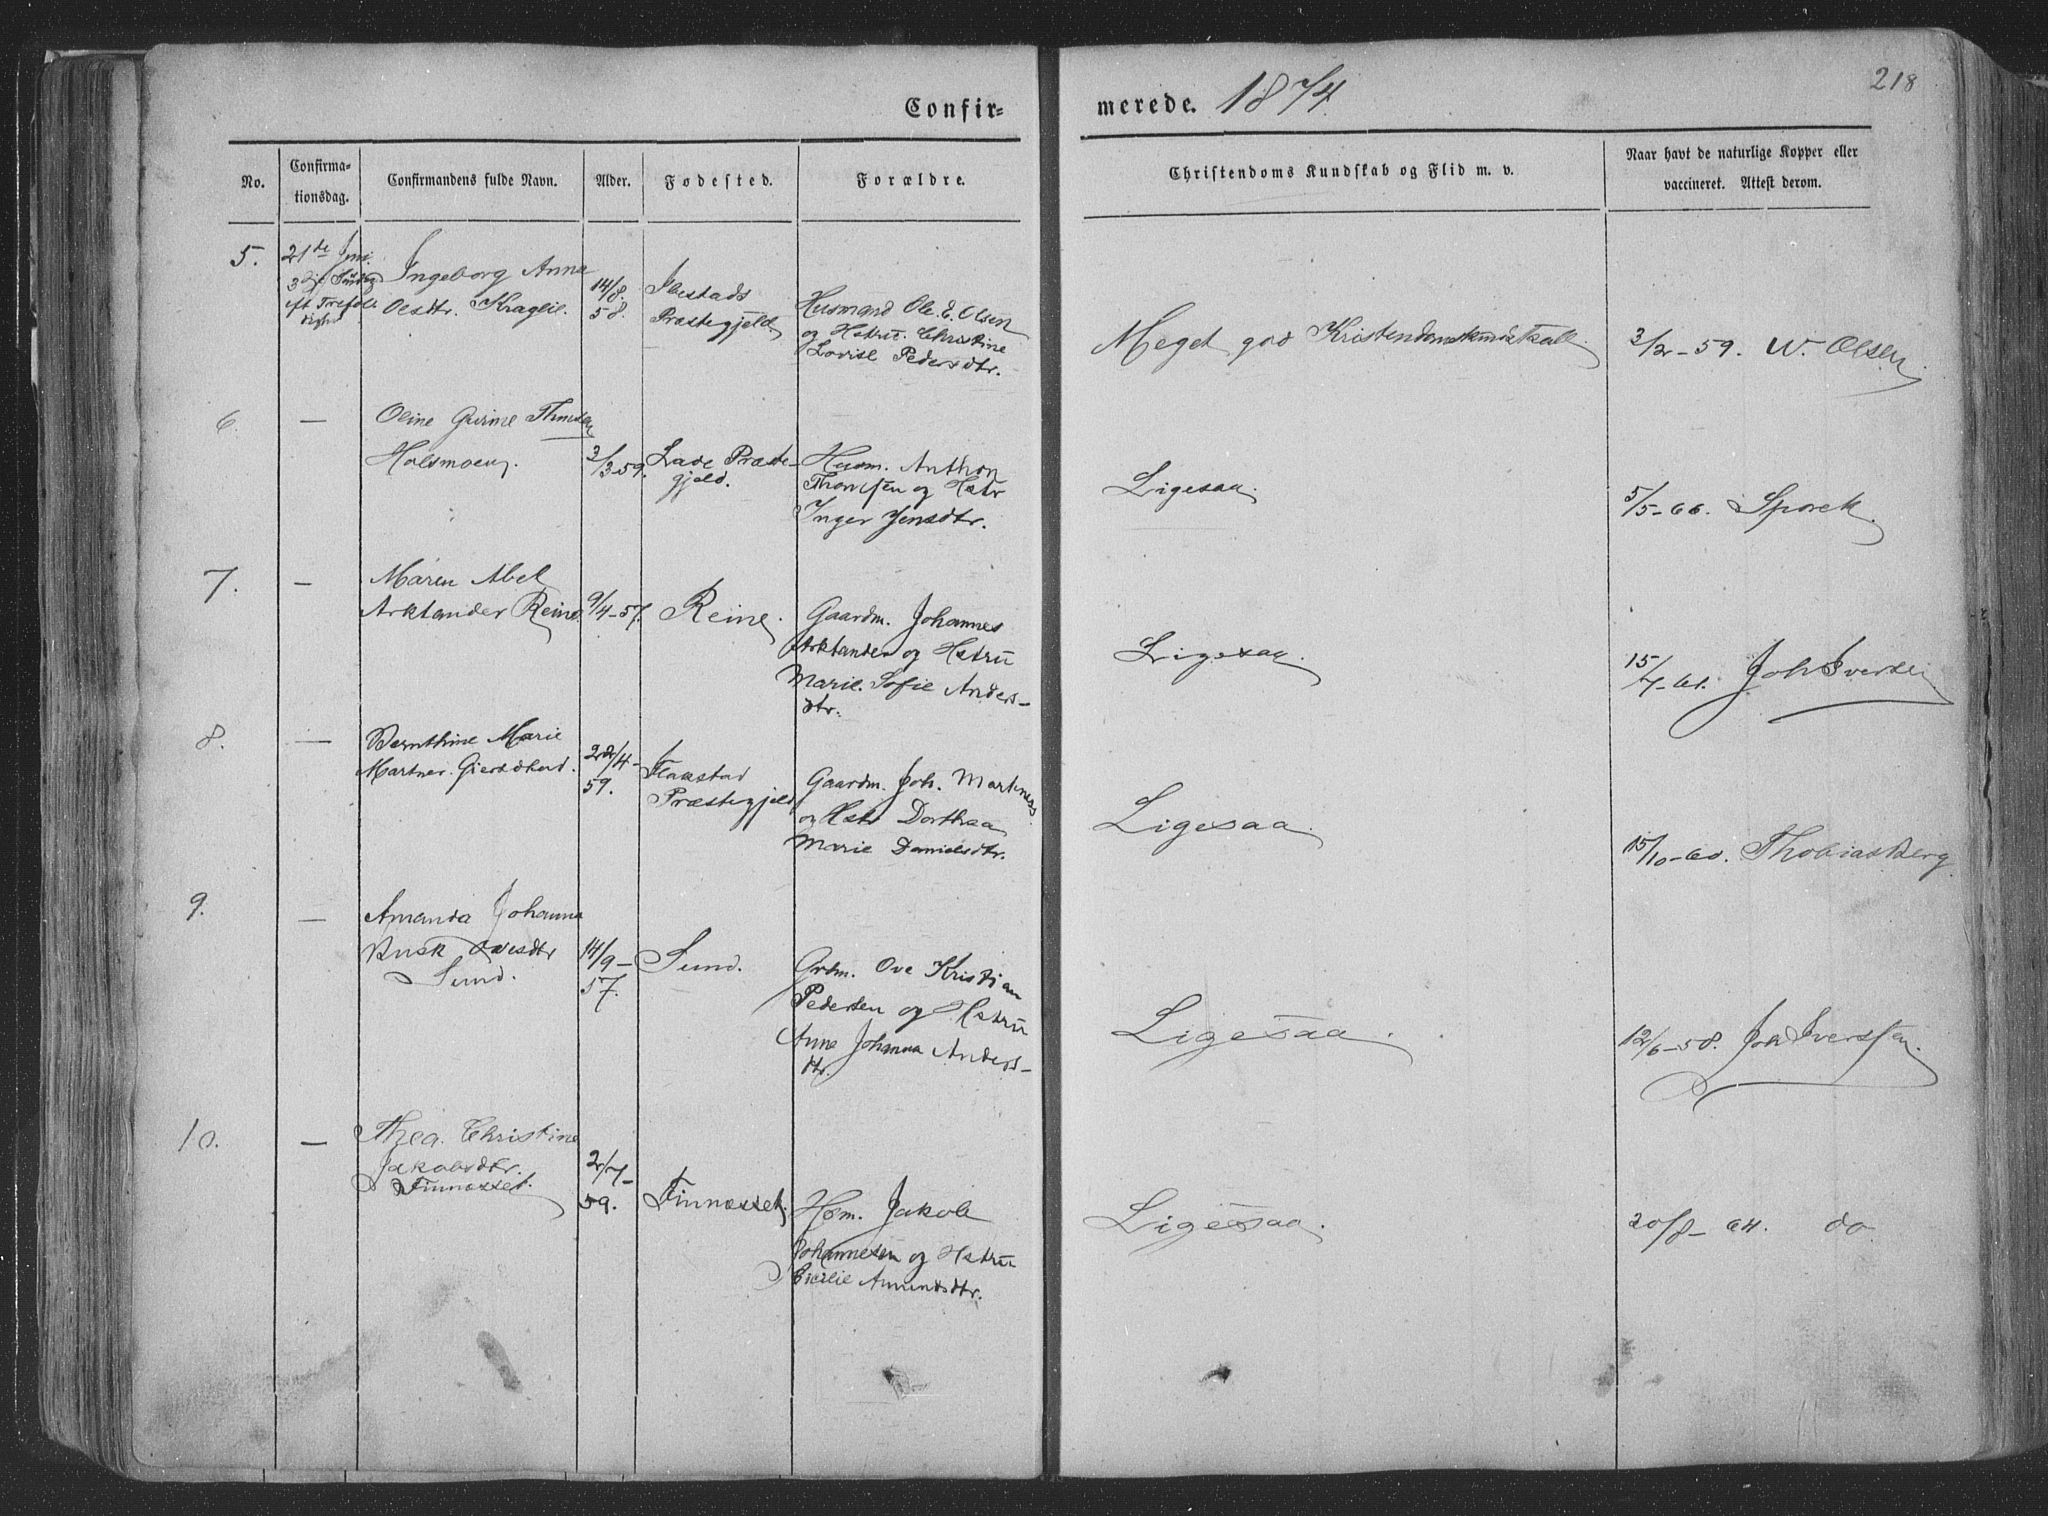 Confir=
merede. 1874.
218
No.
Confirma-
tionsdag.
Confirmandens fulde Navn.
Alder.
Fødested.
Forældre.
Christendoms Kundskab og Flid m. v.
Naar havt de naturlige Kopper eller
vaccineret. Attest derom.
5.
21de Juni
3die Søndag
eft Trefol-
digh
Ingeborg Anna
Olsdtr.
14/8.
58.
Ibestads
Præstegjeld
Husmand Ole E. Olsen
og Hstru. Christine
Lovise Pedersdtr.
Meget god Kristendomskundskab.
3/2-59. W. Olsen
6.
—
Oline Gurine
Holsmoen.
3/3-59.
Lade Præste-
gjeld.
Husm. Anthon
Thomsen og Hstr
Inger Jensdtr.
Ligesaa.
5/5-66. Sporck.
7.
—
Maren Abel
Arktander Reine.
9/4-57.
Reine.
Gaardm. Johannes
Arktander og Hstru
Marie. Sofie Anders-
dtr.
Ligesaa.
15/7-61. Joh Iversen
8.
—
Bernthine Marie
22/4-
59.
Flakstad
Præstegjeld
Gaardm. Joh. Martinus
og Hstr Dorthea
Marie Danielsdtr.
Ligesaa.
15/10-60. Thobias Berg
9.
—
Amanda Johanna
Busk Ovesdtr
Sund.
14/9-
57.
Sund.
Grdm. Ove Kristian
Pedersen og Hstru
Anne Johanna Anders-
dtr.
Ligesaa.
12/6-58. Joh Iversen.
10.
—
Thea. Christine
Jakobsdtr.
Finnæsset.
2/7-
59.
Finnæsset.
Hsm. Jakob
Johannesen og Hstru
Amundsdtr.
Ligesaa.
20/8-64. do.